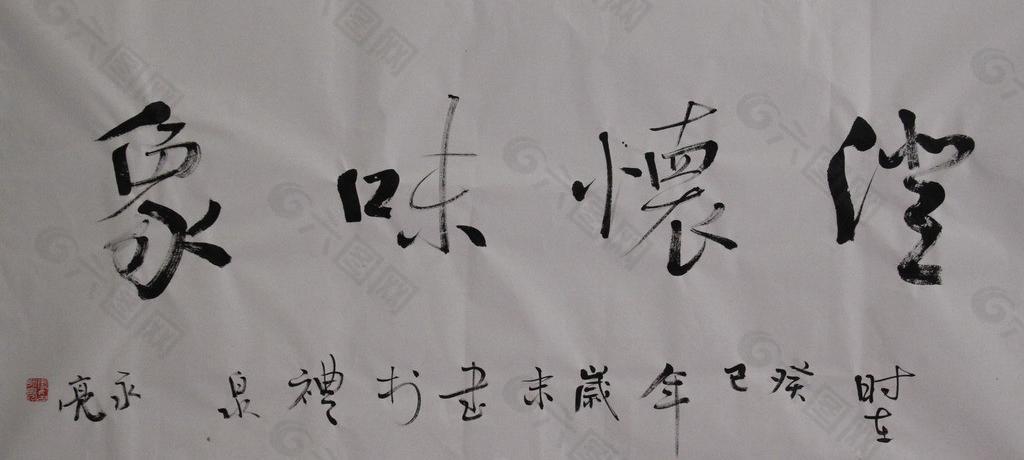 澄懷味象
时在癸巳年歲末书於禮泉永亮